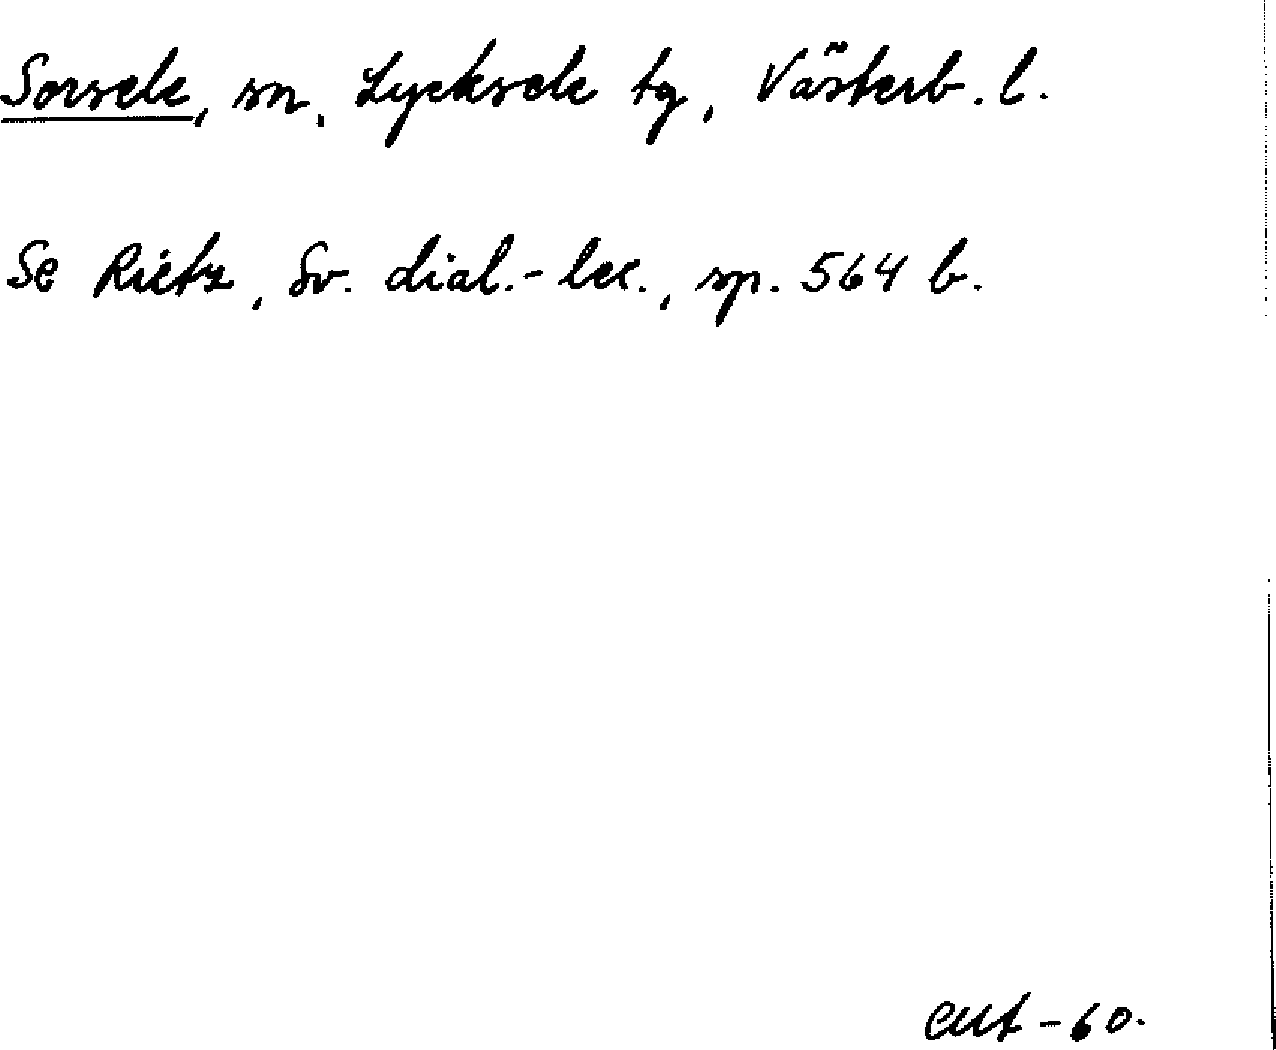 Sorsele, sn, Lycksele tg, Västerb. l.
Se Rietz, Sv. dial.-lex., sp. 564 b.
-60.